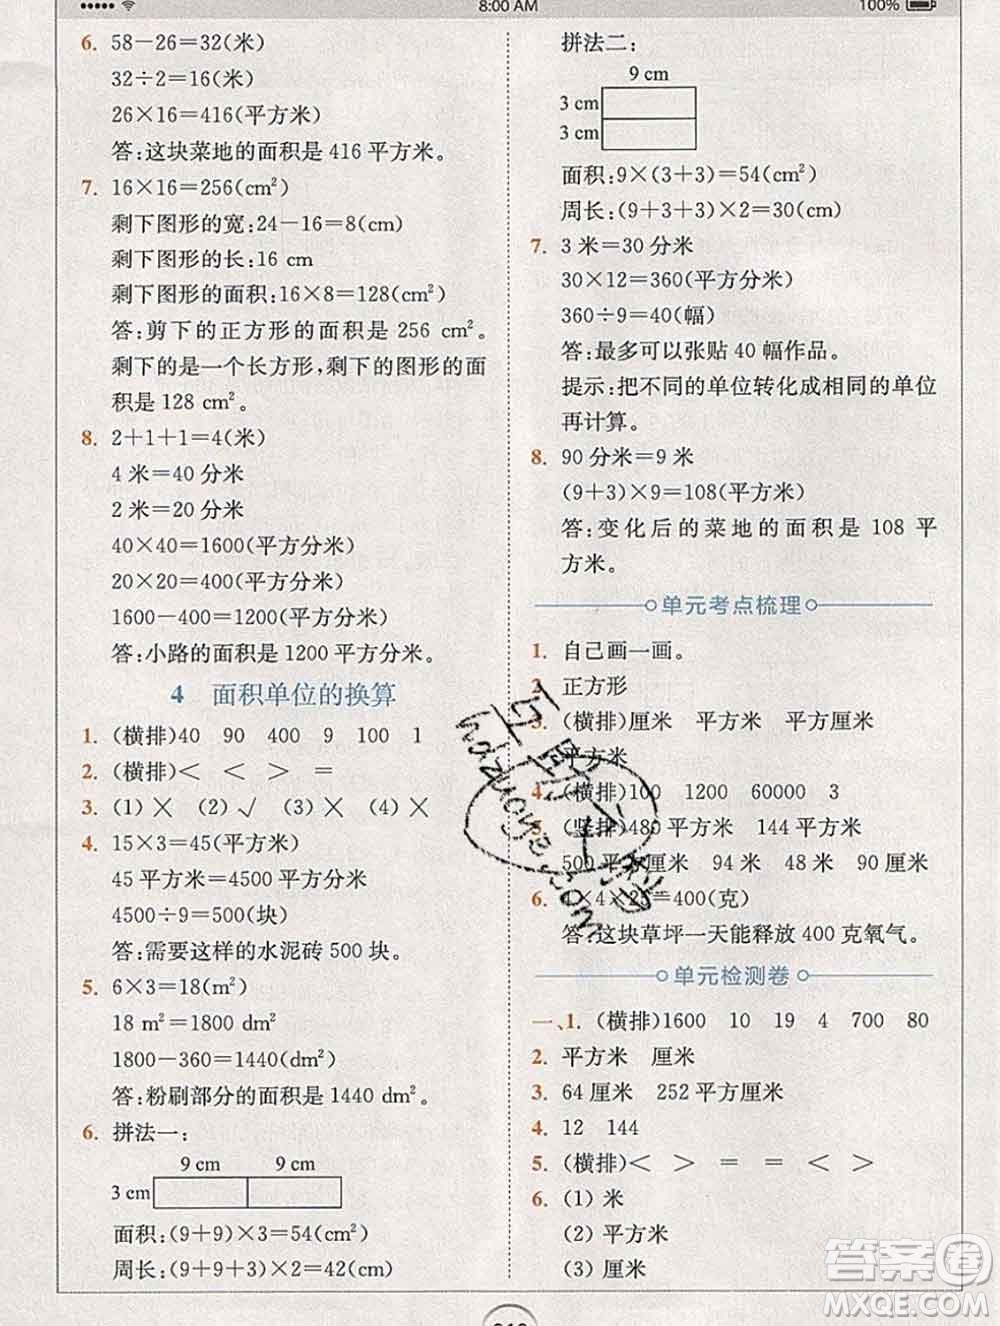 8:00 AM
100%
6. 58-26=32(米)
32÷2=16(米)
26×16=416(平方米)
答:这块菜地的面积是 416 平方米。
7. 16×16=256(cm²)
剩下图形的宽:24-16=8(cm)
剩下图形的长:16 cm
剩下图形的面积:16×8=128(cm²)
答:剪下的正方形的面积是 256 cm²。
剩下的是一个长方形,剩下的图形的面
积是 128 cm²。
8. 2+1+1=4(米)
4 米=40 分米
2 米=20 分米
40×40=1600(平方分米)
20×20=400(平方分米)
1600-400=1200(平方分米)
答:小路的面积是 1200 平方分米。
4 面积单位的换算
1. (横排)40 90 400 9 100 1
2. (横排)< < > =
3. (1) × (2) √ (3) × (4) ×
4. 15×3=45(平方米)
45 平方米=4500 平方分米
4500÷9=500(块)
答:需要这样的水泥砖 500 块。
5. 6×3=18(m²)
18 m²=1800 dm²
1800-360=1440(dm²)
答:粉刷部分的面积是 1440 dm²。
6. 拼法一:
9 cm 9 cm
3 cm
面积:(9+9)×3=54(cm²)
周长:(9+9+3)×2=42(cm)
拼法二:
9 cm
3 cm
3 cm
面积:9×(3+3)=54(cm²)
周长:(9+3+3)×2=30(cm)
7. 3 米=30 分米
30×12=360(平方分米)
360÷9=40(幅)
答:最多可以张贴 40 幅作品。
提示:把不同的单位转化成相同的单位
再计算。
8. 90 分米=9 米
(9+3)×9=108(平方米)
答:变化后的菜地的面积是 108 平
方米。
单元考点梳理
1. 自己画一画。
2. 正方形
3. (横排)厘米 平方米 平方厘米
平方米
4. (横排)100 1200 60000 3
5. (竖排)480 平方米 144 平方米
500 平方厘米 94 米 48 米 90 厘米
6. ×4×25=400(克)
答:这块草坪一天能释放 400 克氧气。
单元检测卷
一、1. (横排)1600 10 19 4 700 80
2. 平方米 厘米
3. 64 厘米 252 平方厘米
4. 12 144
5. (横排)< > = = > <
6. (1) 米
(2) 平方米
(3) 厘米
hdzuoye.com
答案圈
MXQE.COM